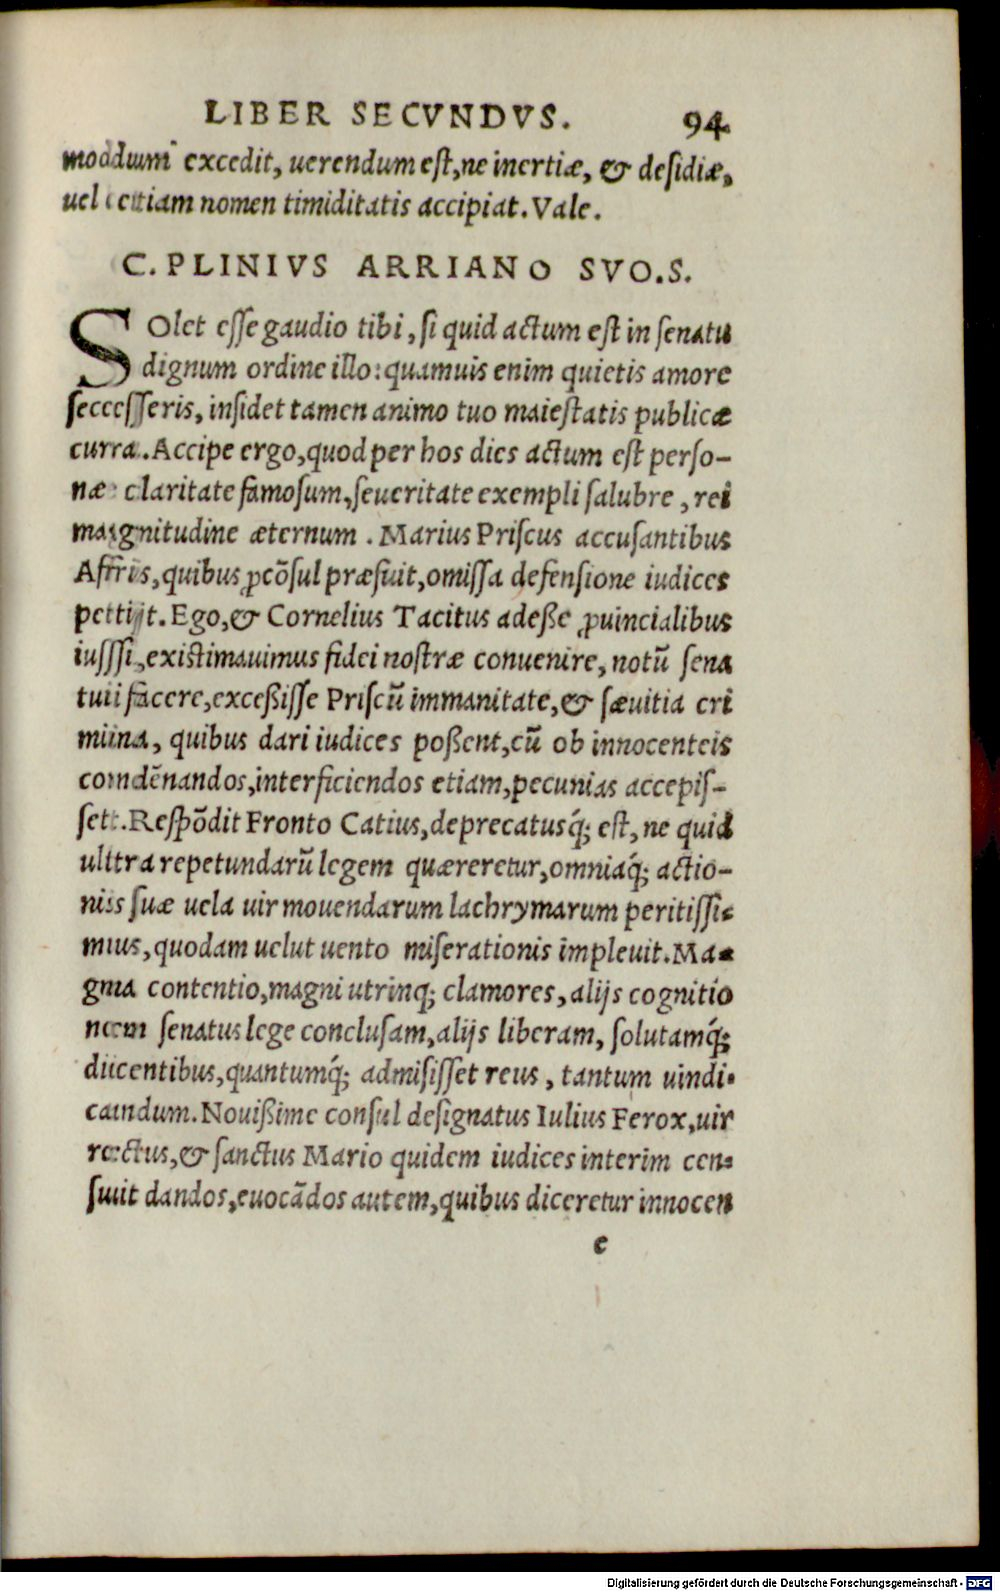 LIBER SECVNDVS. 94
modum excedit, uerendum est, ne inertiæ, & desidiæ,
uel etiam nomen timiditatis accipiat. Vale.
C. PLINIVS ARRIANO SVO. S.
SOlet esse gaudio tibi, si quid actum est in senatu
dignum ordine illo: quamuis enim quietis amore
secesseris, insidet tamen animo tuo maiestatis publicæ
cura. Accipe ergo, quod per hos dies actum est perso-
næ claritate famosum, seueritate exempli salubre, rei
magnitudine æternum. Marius Priscus accusantibus
Afris, quibus ꝓcõsul præfuit, omissa defensione iudices
petijt. Ego, & Cornelius Tacitus adeße ꝓuincialibus
iussi, existimauimus fidei nostræ conuenire, notũ sena
tui facere, exceßisse Priscũ immanitate, & sæuitia cri
mina, quibus dari iudices poßent, cũ ob innocenteis
comdẽnandos, interficiendos etiam, pecunias accepis-
set. Respõdit Fronto Catius, deprecatusq́; est, ne quid
ultra repetundarũ legem quæreretur, omniaq́; actio-
nis suæ uela uir mouendarum lachrymarum peritissi-
mus, quodam uelut uento miserationis impleuit. Ma-
gna contentio, magni utrinq; clamores, alijs cognitio
nem senatus lege conclusam, alijs liberam, solutamq́;
dicentibus, quantumq́; admisisset reus, tantum uindi-
candum. Nouißime consul designatus Iulius Ferox, uir
rectus, & sanctus Mario quidem iudices interim cen-
suit dandos, euocãdos autem, quibus diceretur innocen
e
Digitalisierung gefördert durch die Deutsche Forschungsgemeinschaft - DFG